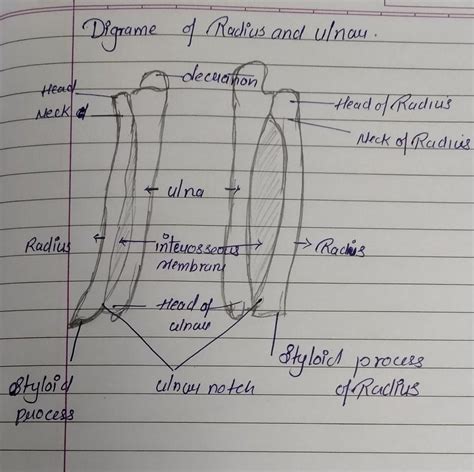 Digrame of Radius and ulnau.
Head
decuation
Head of Radius
Neck of
Neck of Radius
ulna
Radius
inteuosseous
Membrane
Radius
Head of
ulnau
Styloid
process
ulnau notch
Styloid process
of Radius